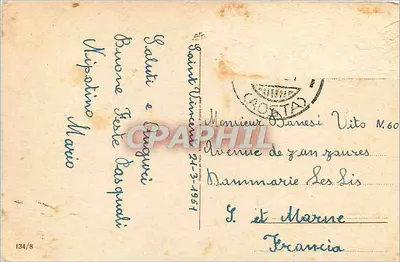 Saluti e Auguri
Buone Feste Pasquali
Nipotino
Mario
Saint Vincent 21-3-1951
(AOSTA)
CPARHIL
Monsieur Banesi Vito N.60
Avenue de Jan zaures
Dammarie Les Lis
S. et Marne
Francia
134/8